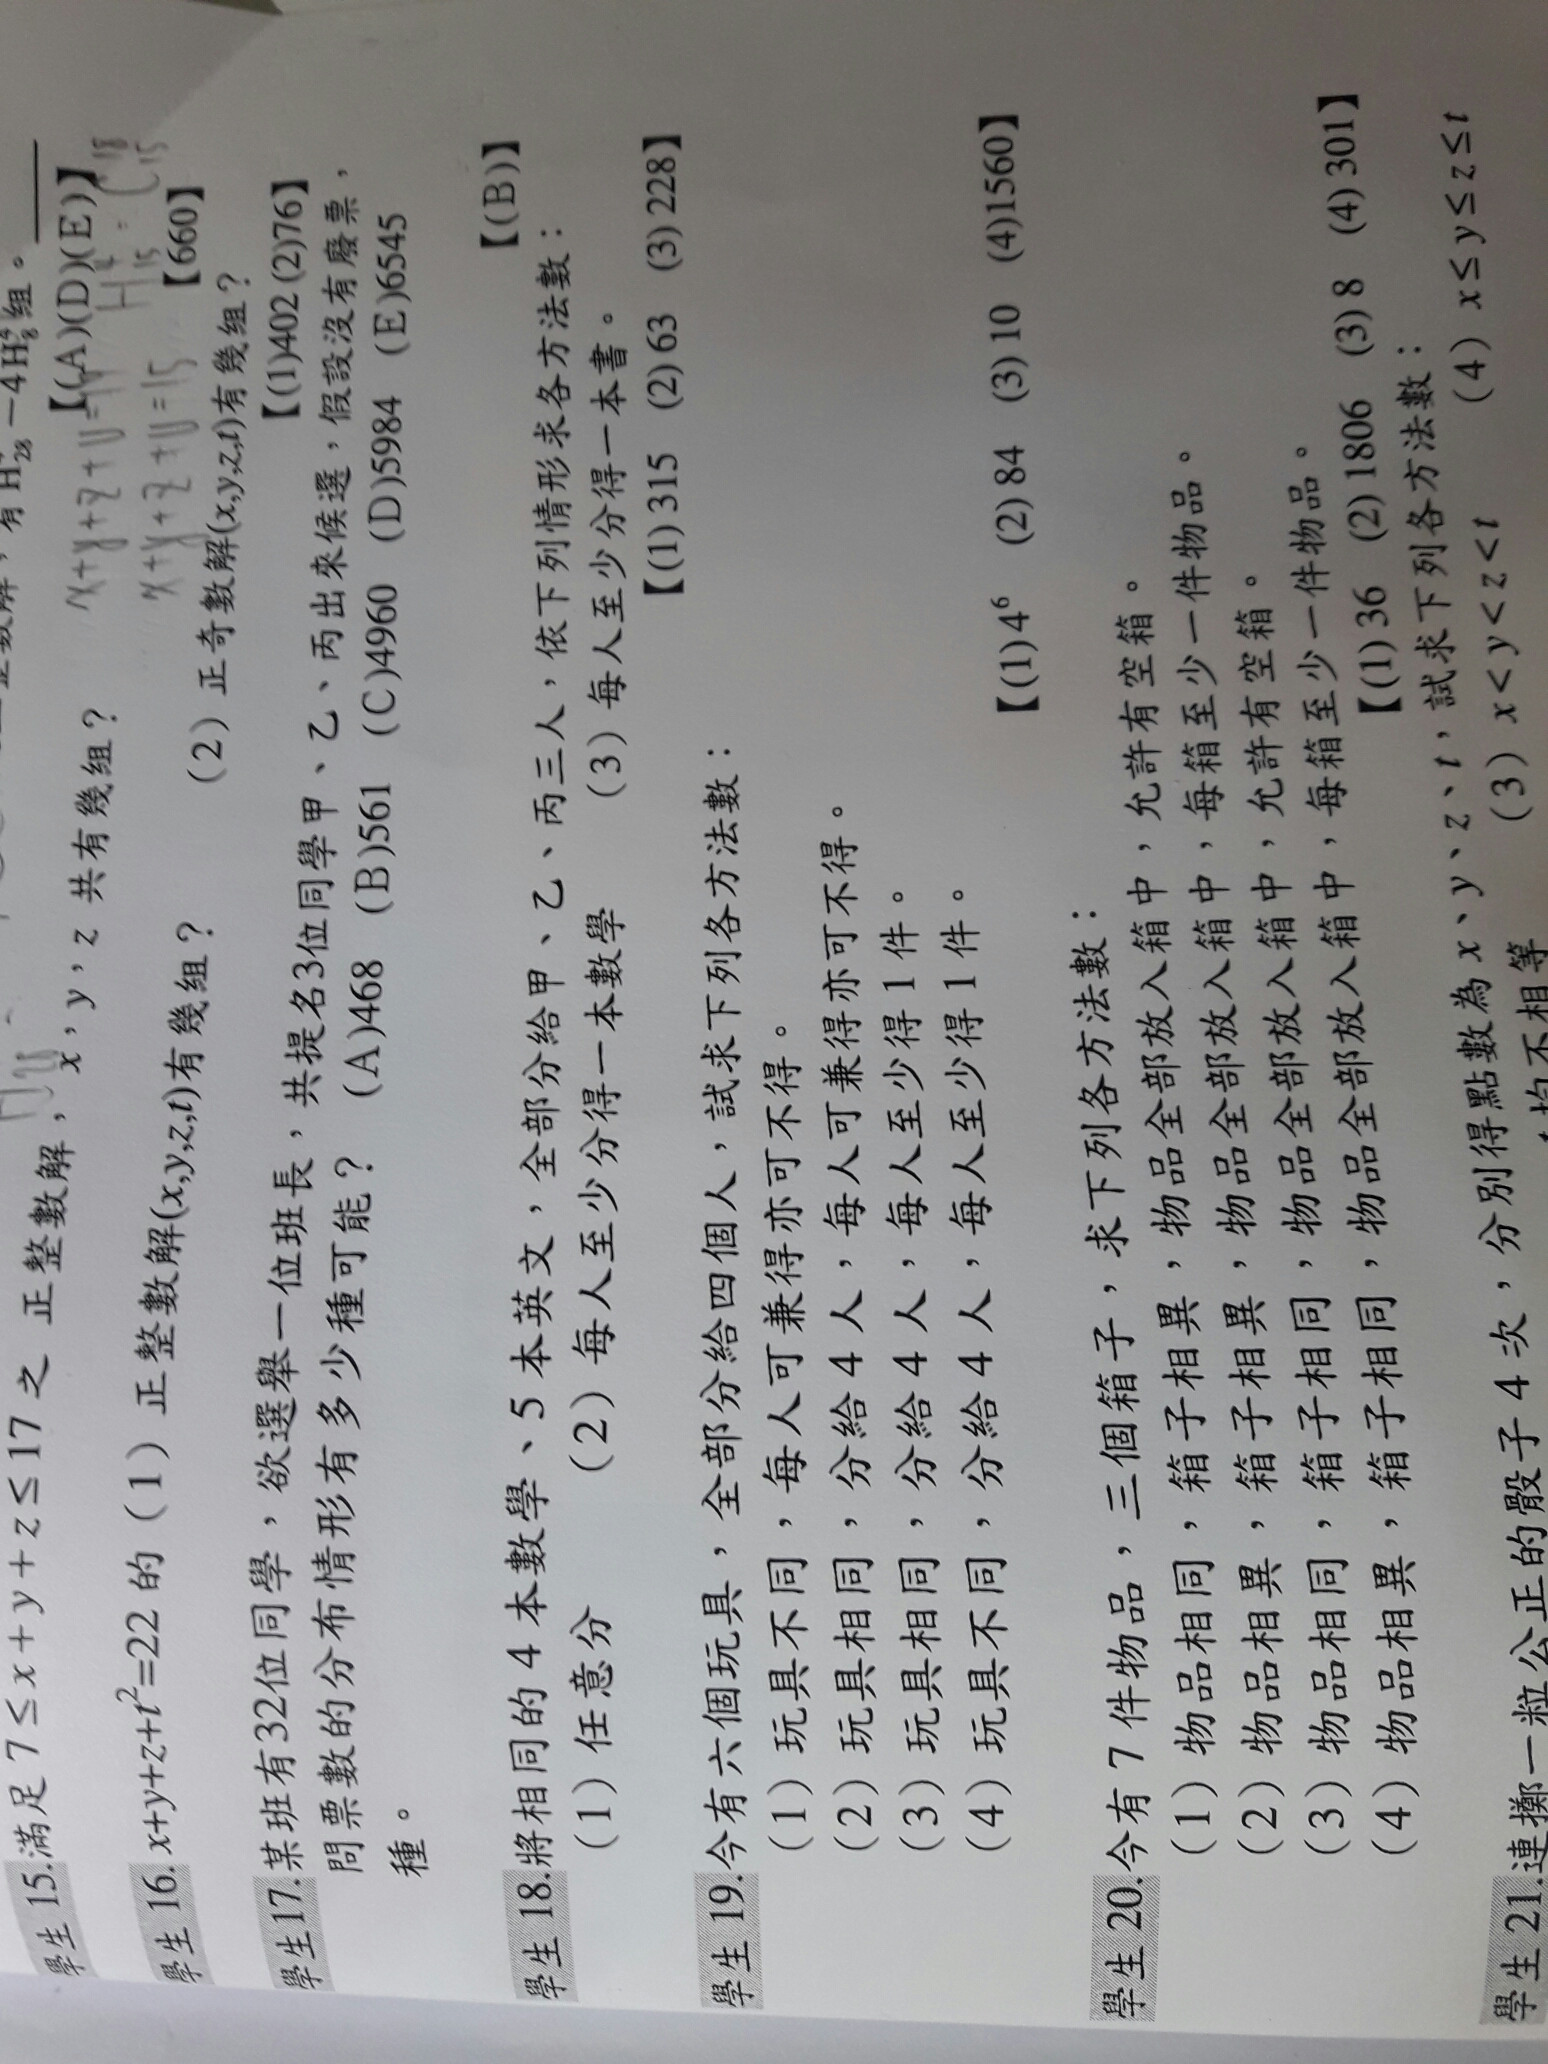 有H₂₈⁴－4H₈⁴組。
【(A)(D)(E)】
學生 15.滿足 7≤x+y+z≤17 之 正整數解，x，y，z 共有幾組？
【660】
x+y+z+u=15
學生 16. x+y+z+t²=22 的（1）正整數解(x,y,z,t)有幾組？ （2）正奇數解(x,y,z,t)有幾組？
【(1)402 (2)76】
學生17.某班有32位同學，欲選舉一位班長，共提名3位同學甲、乙、丙出來候選，假設沒有廢票，
問票數的分布情形有多少種可能？ (A)468 (B)561 (C)4960 (D)5984 (E)6545
種。
【(B)】
學生 18.將相同的 4 本數學、5 本英文，全部分給甲、乙、丙三人，依下列情形求各方法數：
（1）任意分 （2）每人至少分得一本數學 （3）每人至少分得一本書。
【(1) 315 (2) 63 (3) 228】
學生 19.今有六個玩具，全部分給四個人，試求下列各方法數：
（1）玩具不同，每人可兼得亦可不得。
（2）玩具相同，分給 4 人，每人可兼得亦可不得。
（3）玩具相同，分給 4 人，每人至少得 1 件。
（4）玩具不同，分給 4 人，每人至少得 1 件。
【(1) 4⁶ (2) 84 (3) 10 (4)1560】
學生 20.今有 7 件物品，三個箱子，求下列各方法數：
（1）物品相同，箱子相異，物品全部放入箱中，允許有空箱。
（2）物品相異，箱子相異，物品全部放入箱中，每箱至少一件物品。
（3）物品相同，箱子相同，物品全部放入箱中，允許有空箱。
（4）物品相異，箱子相同，物品全部放入箱中，每箱至少一件物品。
【(1) 36 (2) 1806 (3) 8 (4) 301】
學生 21.連擲一粒公正的骰子 4 次，分別得點數為 x、y、z、t，試求下列各方法數：
均不相等 （3）x<y<z<t （4）x≤y≤z≤t